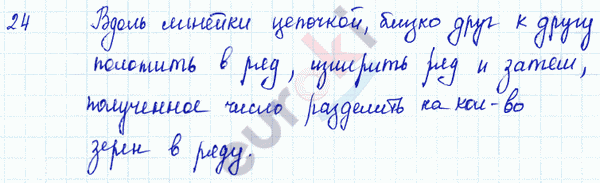 24 Вдоль линейки цепочкой, близко друг к другу
положить в ряд, измерить ряд и затем,
полученное число разделить на кол-во
зерен в ряду.
euroki